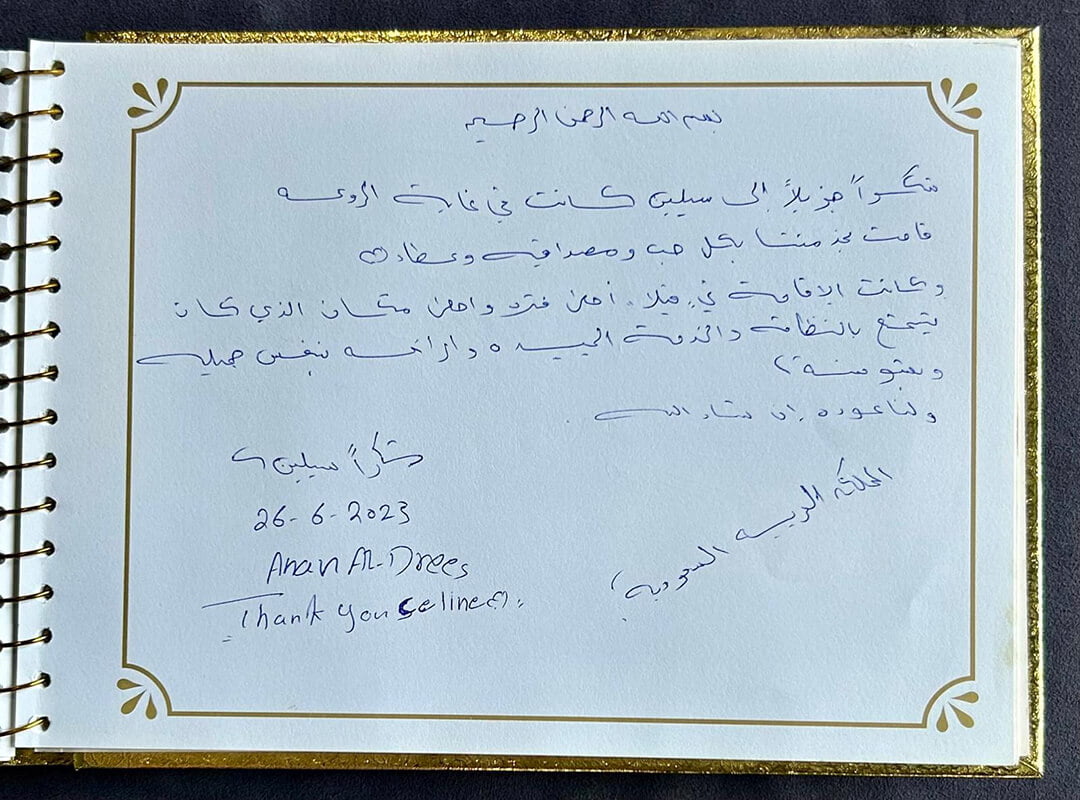 بسم الله الرحمن الرحيم
شكراً جزيلاً إلى سيلين كانت في غاية الروعه
قامت بخدمتنا بكل حب ومصداقيه وعطاء
وكانت الإقامة في فيلا أحلى فتره واحلى مكان الذي كان
يتمتع بالنظافة والخدمة الجيده والراحه بنفس جميله
ولنا عوده إن شاء الله
شكراً سيلين
26-6-2023
Anan AL-Drees
Thank you Celine
المملكة العربيه السعودية